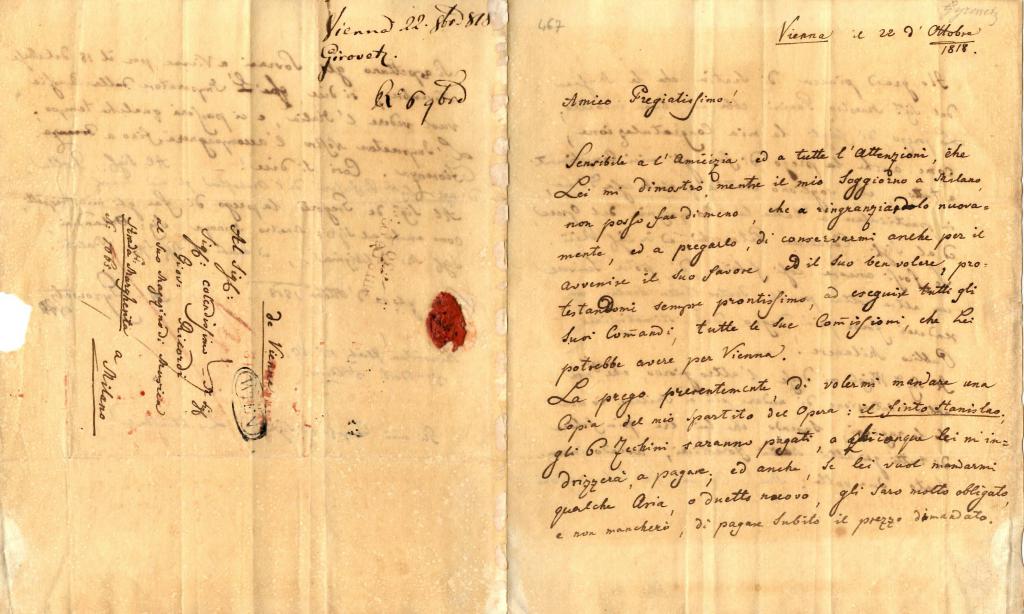 Vienna 22. 8bre 818
Girovetz.
R. 6 9bre
Al Sigr:
Sigr: colendissimo
Giov: Ricordi
al Suo Magazino di Musica
Strada Margherita
N. 1065. a Milano
de Vienne
WIEN
467
Gyrowetz
Vienna il 22 d' Ottobre
1818.
Amico Pregiatissimo!
Sensibile a l'Amicizia ed a tutte l'Attenzioni, che
Lei mi dimostrò, mentre il mio Soggiorno a Milano,
non posso far dimeno, che a ringranziandolo nuova-
mente, ed a pregarlo, di conservarmi anche per il
avvenire il Suo favore, ed il Suo ben volere, pro-
testandomi sempre prontissimo, ad eseguir tutti gli
Suoi Comandi, tutte le Sue Comissioni, che Lei
potrebbe avere per Vienna.
La prego presentemente, di volermi mandare una
Copia del mio spartito del Opera: il finto Stanislao,
gli 6 Zecchini saranno pagati, a chiconque lei m'in-
drizzerà, a pagare, ed anche, se lei vuol mandarmi
qualche Aria, o duetto nuovo, gli saro molto obligato,
e non mancherò, di pagare Subito il prezzo dimandato.